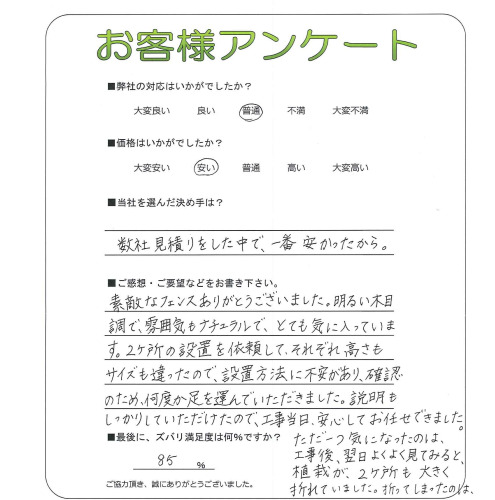 お客様アンケート
■弊社の対応はいかがでしたか？
大変良い 良い 普通 不満 大変不満
■価格はいかがでしたか？
大変安い 安い 普通 高い 大変高い
■当社を選んだ決め手は？
数社見積りをした中で、一番安かったから。
■ご感想・ご要望などをお書き下さい。
素敵なフェンスありがとうございました。明るい木目
調で、雰囲気もナチュラルで、とても気に入っていま
す。2ヶ所の設置を依頼して、それぞれ高さも
サイズも違ったので、設置方法に不安があり、確認
のため、何度か足を運んでいただきました。説明も
しっかりしていただけたので、工事当日、安心してお任せできました。
■最後に、ズバリ満足度は何%ですか？
85 %
ご協力頂き、誠にありがとうございました。
ただ一つ気になったのは、
工事後、翌日よくよく見てみると、
植栽が、2ヶ所も大きく
折れていました。折ってしまったのは、